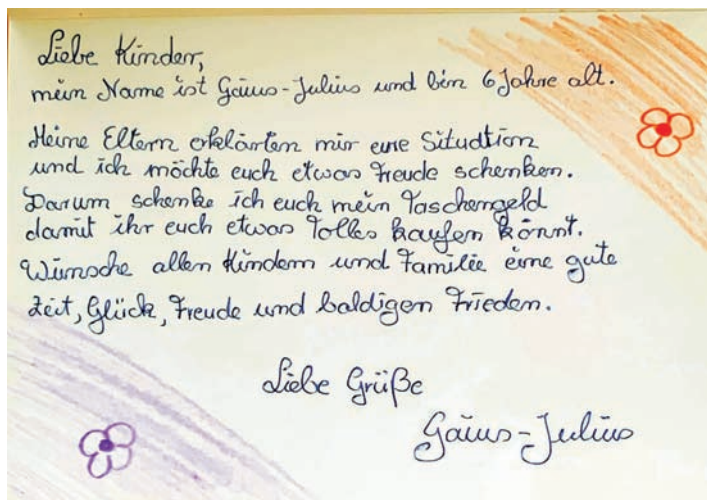 Liebe Kinder,
mein Name ist Gaius-Julius und bin 6 Jahre alt.
Meine Eltern erklärten mir eure Situation
und ich möchte euch etwas Freude schenken.
Darum schenke ich euch mein Taschengeld
damit ihr euch etwas Tolles kaufen könnt.
Wünsche allen Kindern und Familie eine gute
Zeit, Glück, Freude und baldigen Frieden.
Liebe Grüße
Gaius-Julius